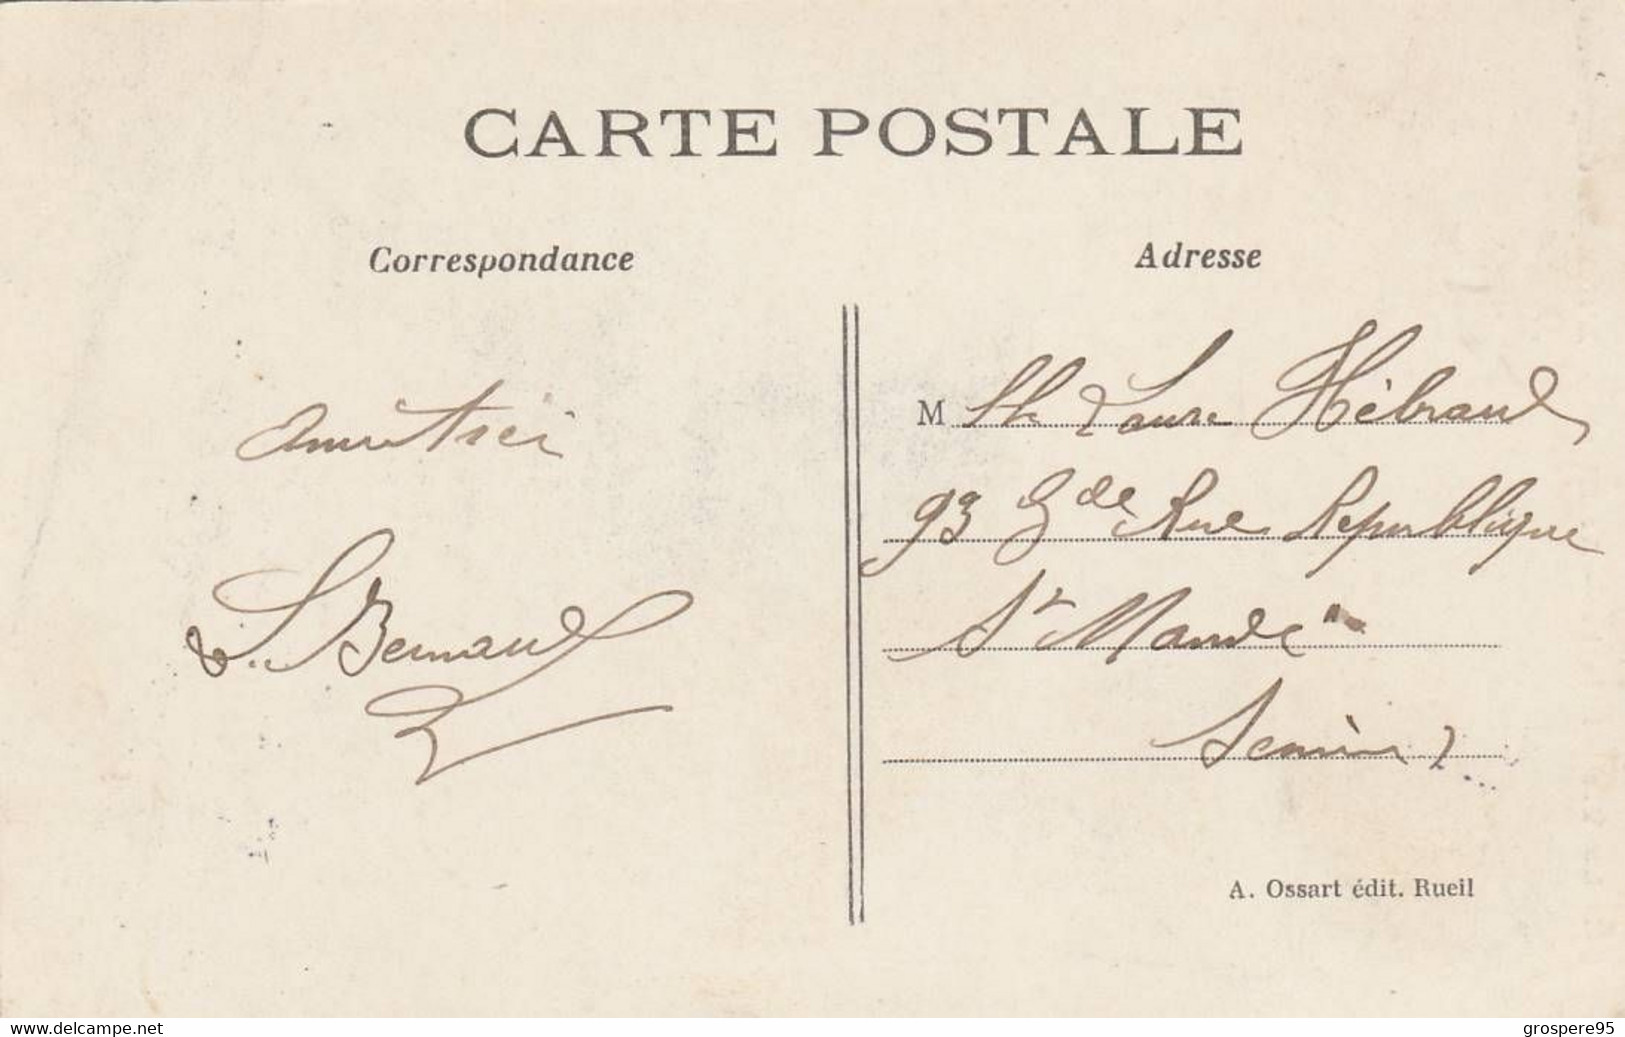 CARTE POSTALE
Correspondance
Adresse
Amitiés
L. Bernaud
M lle Laure Hébraud
93 Gde Rue République
St Mandé
Seine
A. Ossart édit. Rueil
www.delcampe.net
grospere95